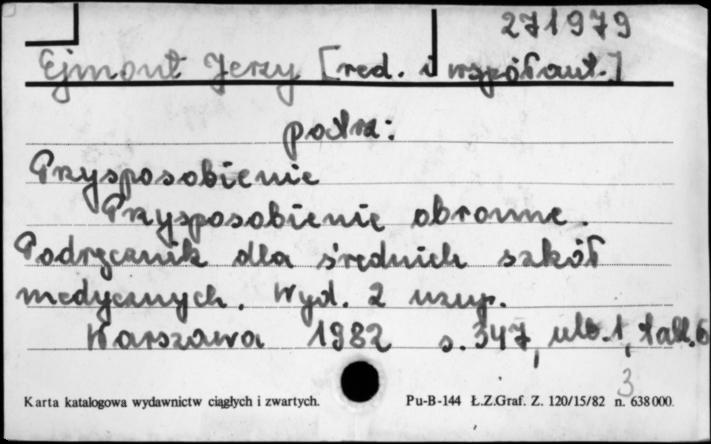 271979
Ejmont Jerzy [red. i współaut.]
patrz:
Przysposobienie
Przysposobienie obronne.
Podręcznik dla średnich szkół
medycznych. Wyd. 2 uzup.
Warszawa 1982 s. 347, ulb. 1, tabl. 6
3
Karta katalogowa wydawnictw ciągłych i zwartych. Pu-B-144 Ł.Z.Graf. Z. 120/15/82 n. 638000.